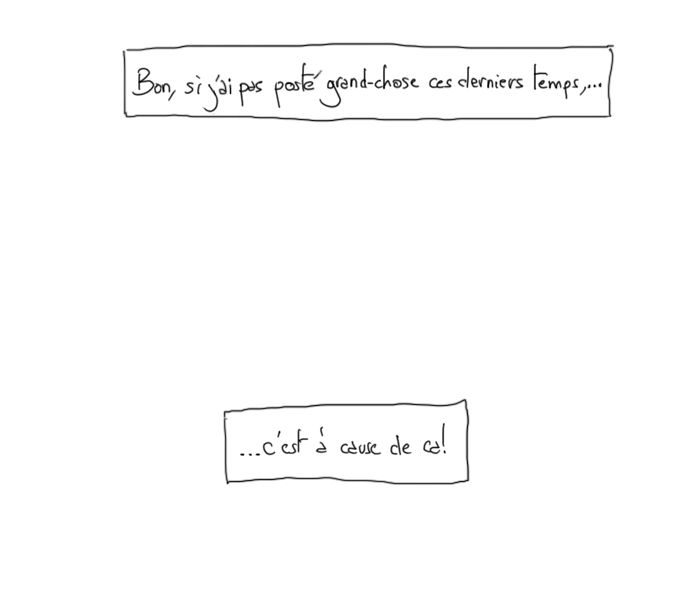 Bon, si j'ai pas posté grand-chose ces derniers temps,...
...c'est à cause de ca!